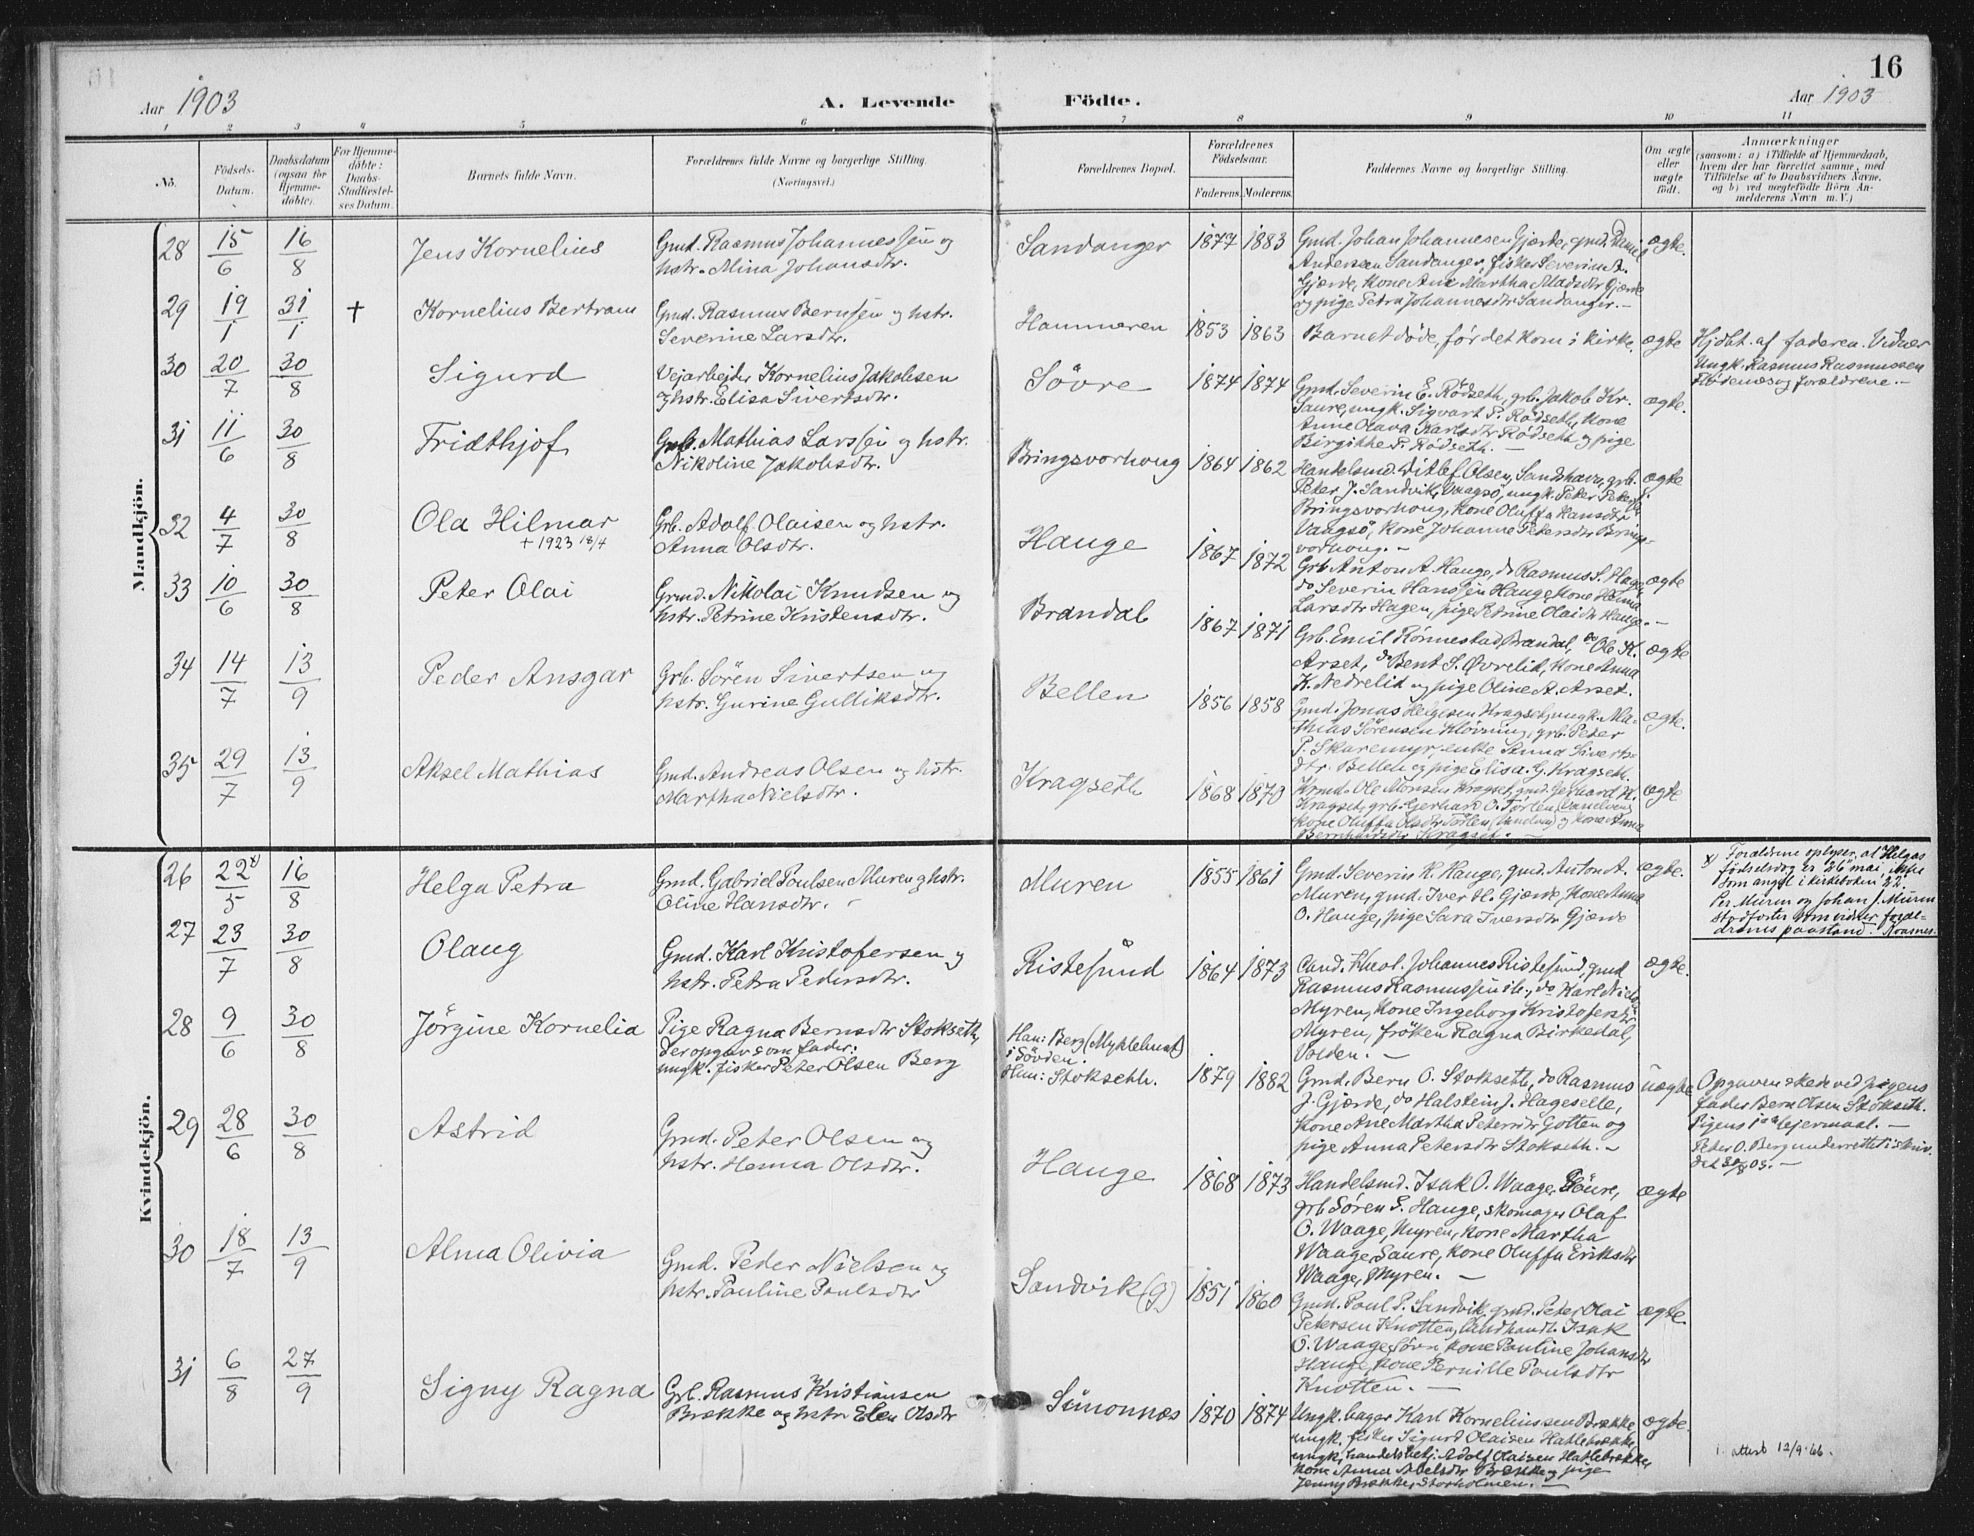 16
Aar 1903
A. Levende Födte.
Aar 1903
1 2 3 4 5 6 7 8 9 10 11
No.
Födsels-
Datum.
Daabsdatum
(ogsaa for
Hjemme-
döbte).
For Hjemme-
döbte:
Daabs-
Stadfæstel-
ses Datum.
Barnets fulde Navn.
Forældrenes fulde Navne og borgerlige Stilling.
(Næringsvei.)
Forældrenes Bopæl.
Forældrenes
Födselsaar.
Faderens. Moderens.
Faddernes Navne og borgerlige Stilling.
Om ægte
eller
uægte
födt.
Anmærkninger
(saasom: a) i Tilfælde af Hjemmedaab,
hvem der har forrettet samme, med
Tilföielse af to Daabsvidners Navne,
og b) ved uægtefödte Börn An-
melderens Navn m. V.)
Mandkjön.
28 15/6 16/8 Jens Kornelius
Gmd. Rasmus Johannessen og
hstr. Mina Johansdtr.
Sandanger 1877 1883
Gmd. Johan Johannesen Gjærde, gmd. Daniel
Andersen Sandanger, fisker Severin A.
Gjærde, kone Ane Martha Madsdtr Gjærde
og pige Petra Johannesdtr Sandanger. -
ægte.
29 19/1 31/1 + Kornelius Bertram
Gmd. Rasmus Bernsen og hstr.
Severine Larsdtr.
Hammeren 1853 1863
Barnet döde, för det kom i kirke.
ægte
Hjdbt. af faderen. Vidner
Ungk. Rasmus Rasmussen
Flødenæs og forældrene. -
30 20/7 30/8 Sigurd
Vejarbejder Kornelius Jakobsen
og hstr. Elisa Sivertsdtr.
Sövre 1874 1874
Gmd. Severin E. Rödseth, grb. Jakob Kr.
Saure, ungk. Sigvart P. Rödseth, kone
Anne Olava Karlsdtr Rödseth og pige
Birgithe P. Rödseth. -
ægte.
31 11/6 30/8 Fridthjof
Grb. Mathias Larssen og hstr.
Nikoline Jakobsdtr.
Bringsvorhoug 1864 1862
Handelsmd. Ditlef Olsen, Sandshavn, grb.
Peter J. Sandvik, Vaagsö, ungk. Peter Peters.
Bringsvorhoug, kone Oluffa Hansdtr
Vaagsö, kone Johanne Petersdtr Brings-
vorhoug. -
ægte
32 4/7 30/8 Ola Hilmar
+ 1923 18/4
Grb. Adolf Olaisen og hstr.
Anna Olsdtr.
Hauge 1867 1872
Grb. Anton A. Hauge, do Rasmus S. Hage,
do Severin Hanssen Hauge, kone Henna
Larsdtr Hagen, pige Petrine Olaidtr Hauge. -
ægte
33 10/6 30/8 Peter Olai
Grmd. Nikolai Knudsen og
hstr. Petrine Kristensdtr.
Brandal 1867 1871
Grb. Emil Rönnestad, Brandal, do Ole K.
Arset, do Bent S. Øvrelid, kone Anna
K. Nedrelid og pige Oline A. Arset.
ægte
34 14/7 13/9 Peder Ansgar
Grb. Sören Sivertsen og
hstr. Gurine Gulliksdtr.
Bellen 1856 1858
Gmd. Jonas Helgesen Kragset, ungk. Ma-
thias Sörensen Klövning, grb. Peter
P. Skaremyr, enke Anna Siverts-
dtr. Bellen og pige Elisa. G. Kragseth.
ægte.
35 29/7 13/9 Aksel Mathias
Gmd. Andreas Olsen og hstr.
Martha Nielsdtr.
Kragseth 1868 1870
Krmd. Ole Monsen Kragset, gmd. Gerhard K.
Kragset, grb. Gerhard O. Törlen,
kone Oluffa Olsdtr Törlen og kone Anna
Berntsdtr Kragset. -
ægte
Kvindekjön.
26 22x)/5 16/8 Helga Petra
Gmd. Gabriel Poulsen Muren og hstr.
Oline Hansdtr.
Muren 1855 1861
Gmd. Severin R. Hauge, gmd. Anton A.
Muren, gmd. Iver H. Gjærde, kone Anna
O. Hauge, pige Sara Iversdtr Gjærde
ægte.
x) Forældrene oplyser, at Helgas
födselsdag er 26 mai, ikke
som angit i kirkeboken 22.
Per Muren og Johan J. Muren
stadfæster som vidner foræl-
drenes paastand.
27 23/7 30/8 Olaug
Gmd. Karl Kristofersen og
hstr. Petra Pedersdtr.
Ristesund 1864 1873
Cand. theol. Johannes Ristesund, gmd
Rasmus Rasmussen ib., do Karl Niels.
Myren, kone Ingeborg Kristofersdtr
Myren, fröken Ragna Birkedal,
Volden. -
ægte.
28 9/6 30/8 Jörgine Kornelia
Pige Ragna Bernsdtr Stokseth,
der opgav som fader:
ungk. fisker Peter Olsen Berg
Han: Berg (Myklebust)
i Sövden.
Hun: Stokseth.
1879 1882
Gmd. Bern O. Stokseth, do Rasmus
J. Gjærde, do Halstein J. Hageselle,
kone Ane Martha Petersdtr Gotten og
pige Anna Petersdtr Stokseth. -
uægte
Opgaven skede ved pigens
fader Bern Olsen Stokseth.
Pigens 1ste lejermaal. -
Peter O. Berg underrettet i skriv.
det 30/8 03. -
29 28/6 30/8 Astrid
Gmd. Peter Olsen og
hstr. Henna Olsdtr.
Hauge 1868 1873
Handelsmd. Isak O. Waage, Saure,
grb Sören S. Hauge, skomager Olaf
O. Waage, Myren, kone Martha
Waage, Saure, kone Oluffa Eriksdtr
Waage, Myren. -
ægte
30 18/7 13/9 Alma Olivia
Gmd. Peder Nielsen og
hstr. Pauline Poulsdtr
Sandvik (g) 1851 1860
Gmd. Poul P. Sandvik, gmd. Peter Olai
Petersen Knotten, landhandl. Isak
O. Waage, Sövn, kone Pauline Johansdtr
Hauge, kone Pernille Poulsdtr
Knotten. -
ægte.
31 6/8 27/9 Signy Ragna
Grb. Rasmus Kristiansen
Brække og hstr Elen Olsdtr
Simonnæs 1870 1874
Ungk. bager Karl Korneliussen Brække,
ungk. fisker Sigurd Olaisen Hatlebrække,
ungk. handelsbetj. Adolf Olaisen Hatlebrække,
kone Anna Abelsdtr Brække og pige
Jenny Brække, Storholmen. -
ægte.
1. attest 12/9-66.